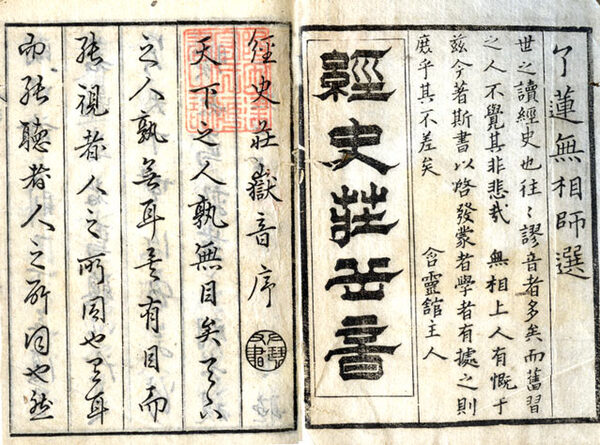 了蓮無相師選
世之讀經史也往〻謬音者多矣而舊習
之人不覺其非悲哉 無相上人有慨于
茲今著斯書以啓發蒙者學者有據之則
庶乎其不差矣
含靈舘主人
經史莊岳音
經史莊嶽音序
天下之人孰無目矣天下
之人孰無耳矣有目而
能視者人之所同也有耳
而能聽者人之所同也然